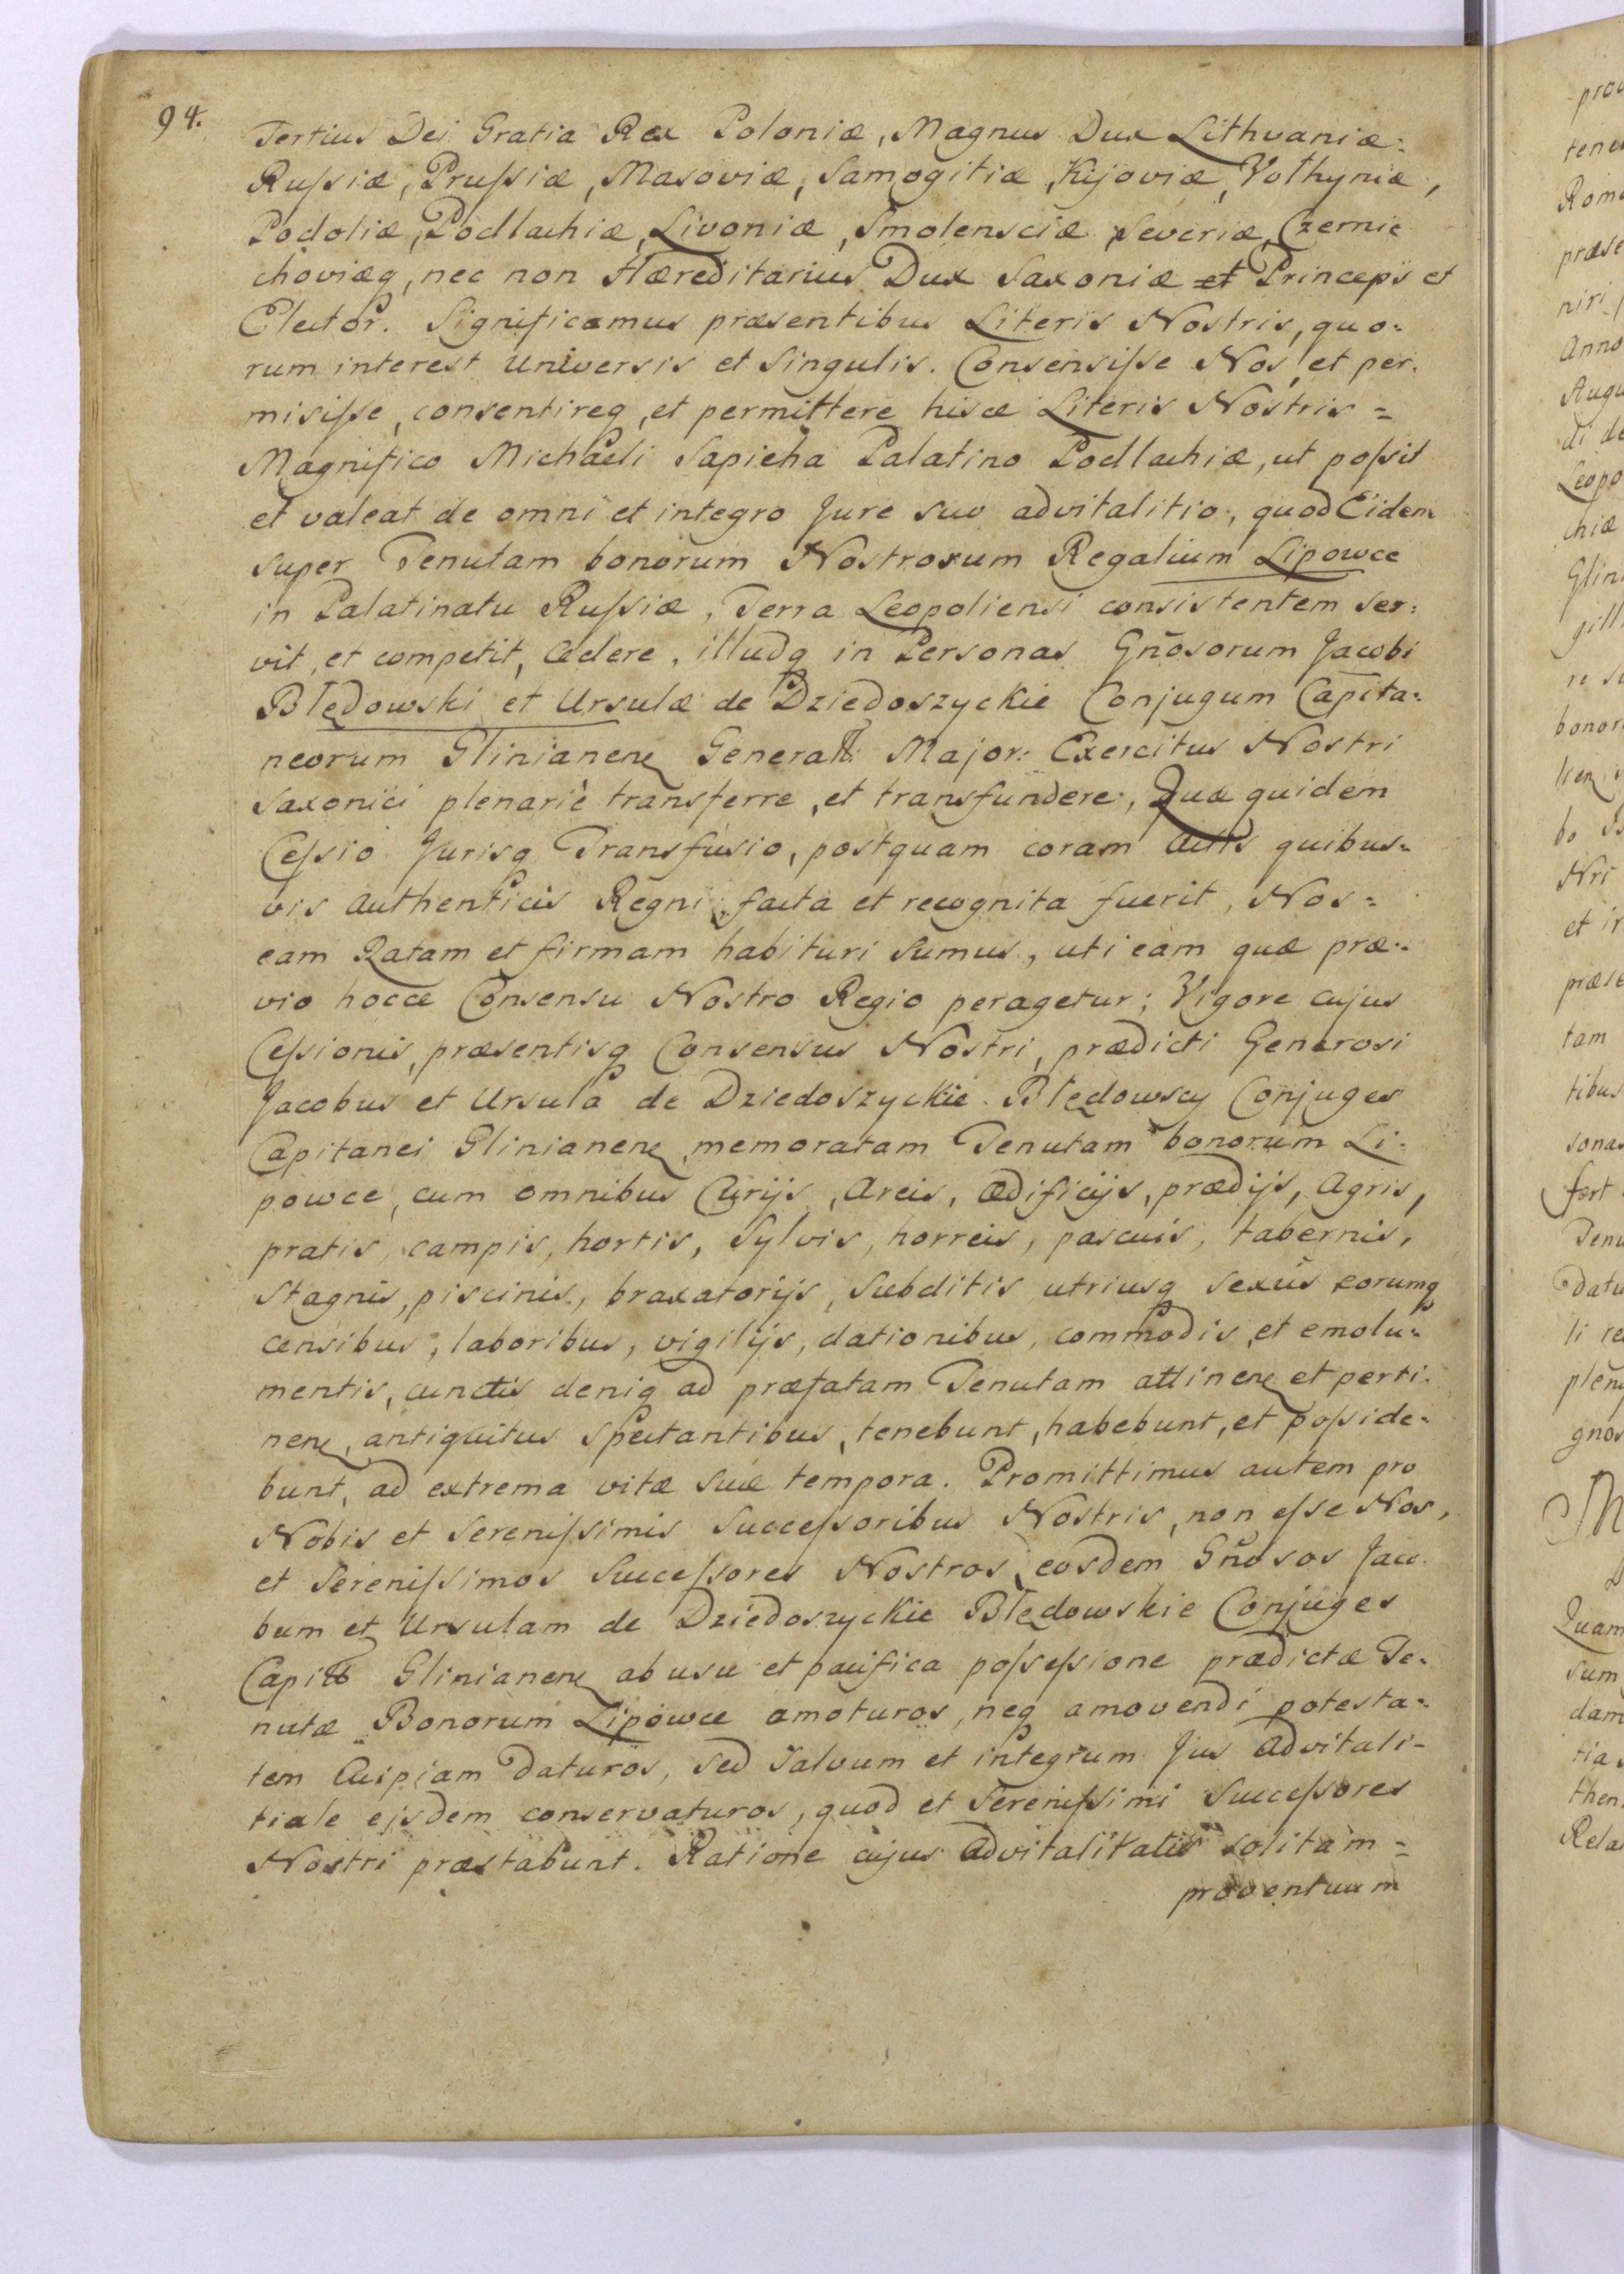 94.
Tertius Dei Gratia Rex Poloniæ, Magnus Dux Lithvaniæ:
Rußiæ, Prußiæ, Masoviæ, Samogitiæ, Kijoviæ, Volhyniæ,
Podoliæ, Podlachiæ, Livoniæ, Smolensciæ Severiæ, Czernie
choviæq, nec non Hæreditarius Dux Saxoniæ et Princeps et
Elector. Significamus præsentibus Literis Nostris, quo:
rum interest Universis et Singulis. Consensiſse Nos, et per:
misiſse, consentireq, et permittere hisce Literis Nostris =
Magnifico Michaeli Sapieha Palatino Podlachiæ, ut poſsit
et valeat de omni et integro Jure suo advitalitio, quod Eidem
super Tenutam bonorum Nostrorum Regalium Lipowce
in Palatinatu Ruſsiæ, Terra Leopoliensi consistentem ser:
vit, et competit, Cedere, illudq in Personas Gñosorum Jacobi
Błędowski et Ursulæ de Dziedoszyckie Conjugum Capita:
neorum Glinianen Generall: Major: Exercitus Nostri
Saxonici plenariè transferre, et transfundere, Quæ quidem
Ceſsio Jurisq Transfusio, postquam coram Actis quibus:
vis Authenticis Regni facta et recognita fuerit, Nos =
eam Ratam et firmam habituri Sumus, uti eam quæ præ:
vio hocce Consensu Nostro Regio peragetur; Vigore cujus
Ceſsionis, præsentisq Consensus Nostri, prædicti Generosi
Jacobus et Ursula de Dziedoszyckie Błędowscy Conjuges
Capitanei Glinianen memoratam Tenutam bonorum Li:
powce, cum omnibus Curijs, Areis, Ædificijs, prædijs, Agris,
pratis, campis, hortis, Sylvis, horreis, pascuis, tabernis,
Stagnis, piscinis, braxatorijs, Subditis utriusq Sexûs eorumq
censibus, laboribus, vigilijs, dationibus, commodis, et emolu:
mentis, cunctis deniq ad præfatam Tenutam attinen et perti:
nen, antiquitus Spectantibus, tenebunt, habebunt, et poſside:
bunt, ad extrema vitæ Suæ tempora. Promittimus autem pro
Nobis et Sereniſsimis Succeſsoribus Nostris, non eſse Nos,
et Sereniſsimos Succeſsores Nostros, eosdem Gñosos Jaco:
bum et Ursulam de Dziedoszyckie Błędowskie Conjuges
Capitt Glinianen ab usu et pacifica poſseſsione prædictæ Te:
nutæ Bonorum Lipowce amoturos, neq amovendi potesta:
tem Cuipiam daturos, Sed Salvum et integrum Jus Advitali-
tiale ejsdem conservaturos, quod et Sereniſsimi Succeſsores
Nostri præstabunt. Ratione cujus Advitalitatis solitam =
proventuum